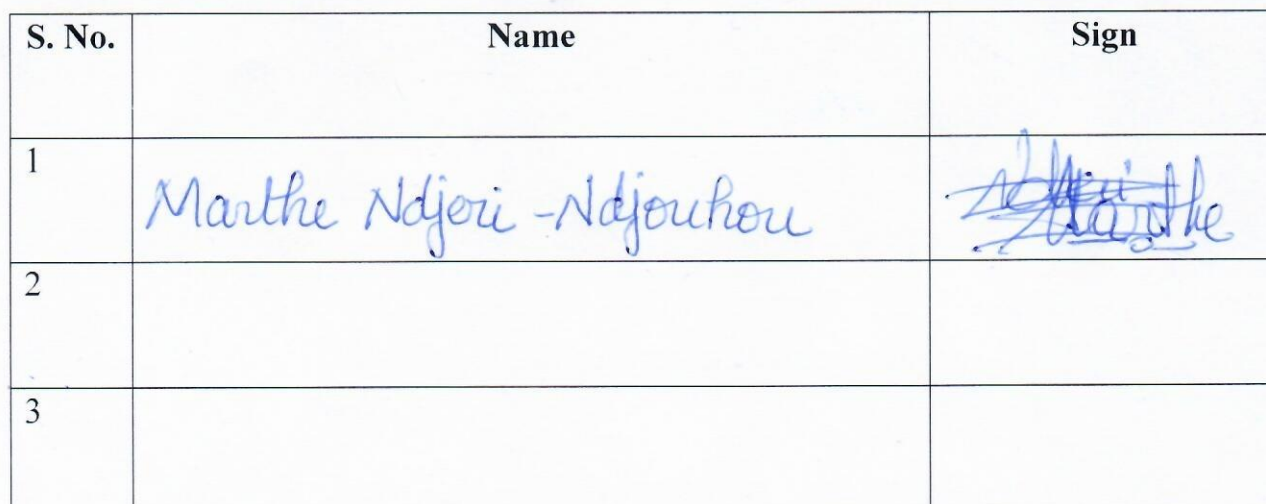 S. No. Name Sign
1 Marthe Ndjeri-Ndjouhou Marthe
2
3